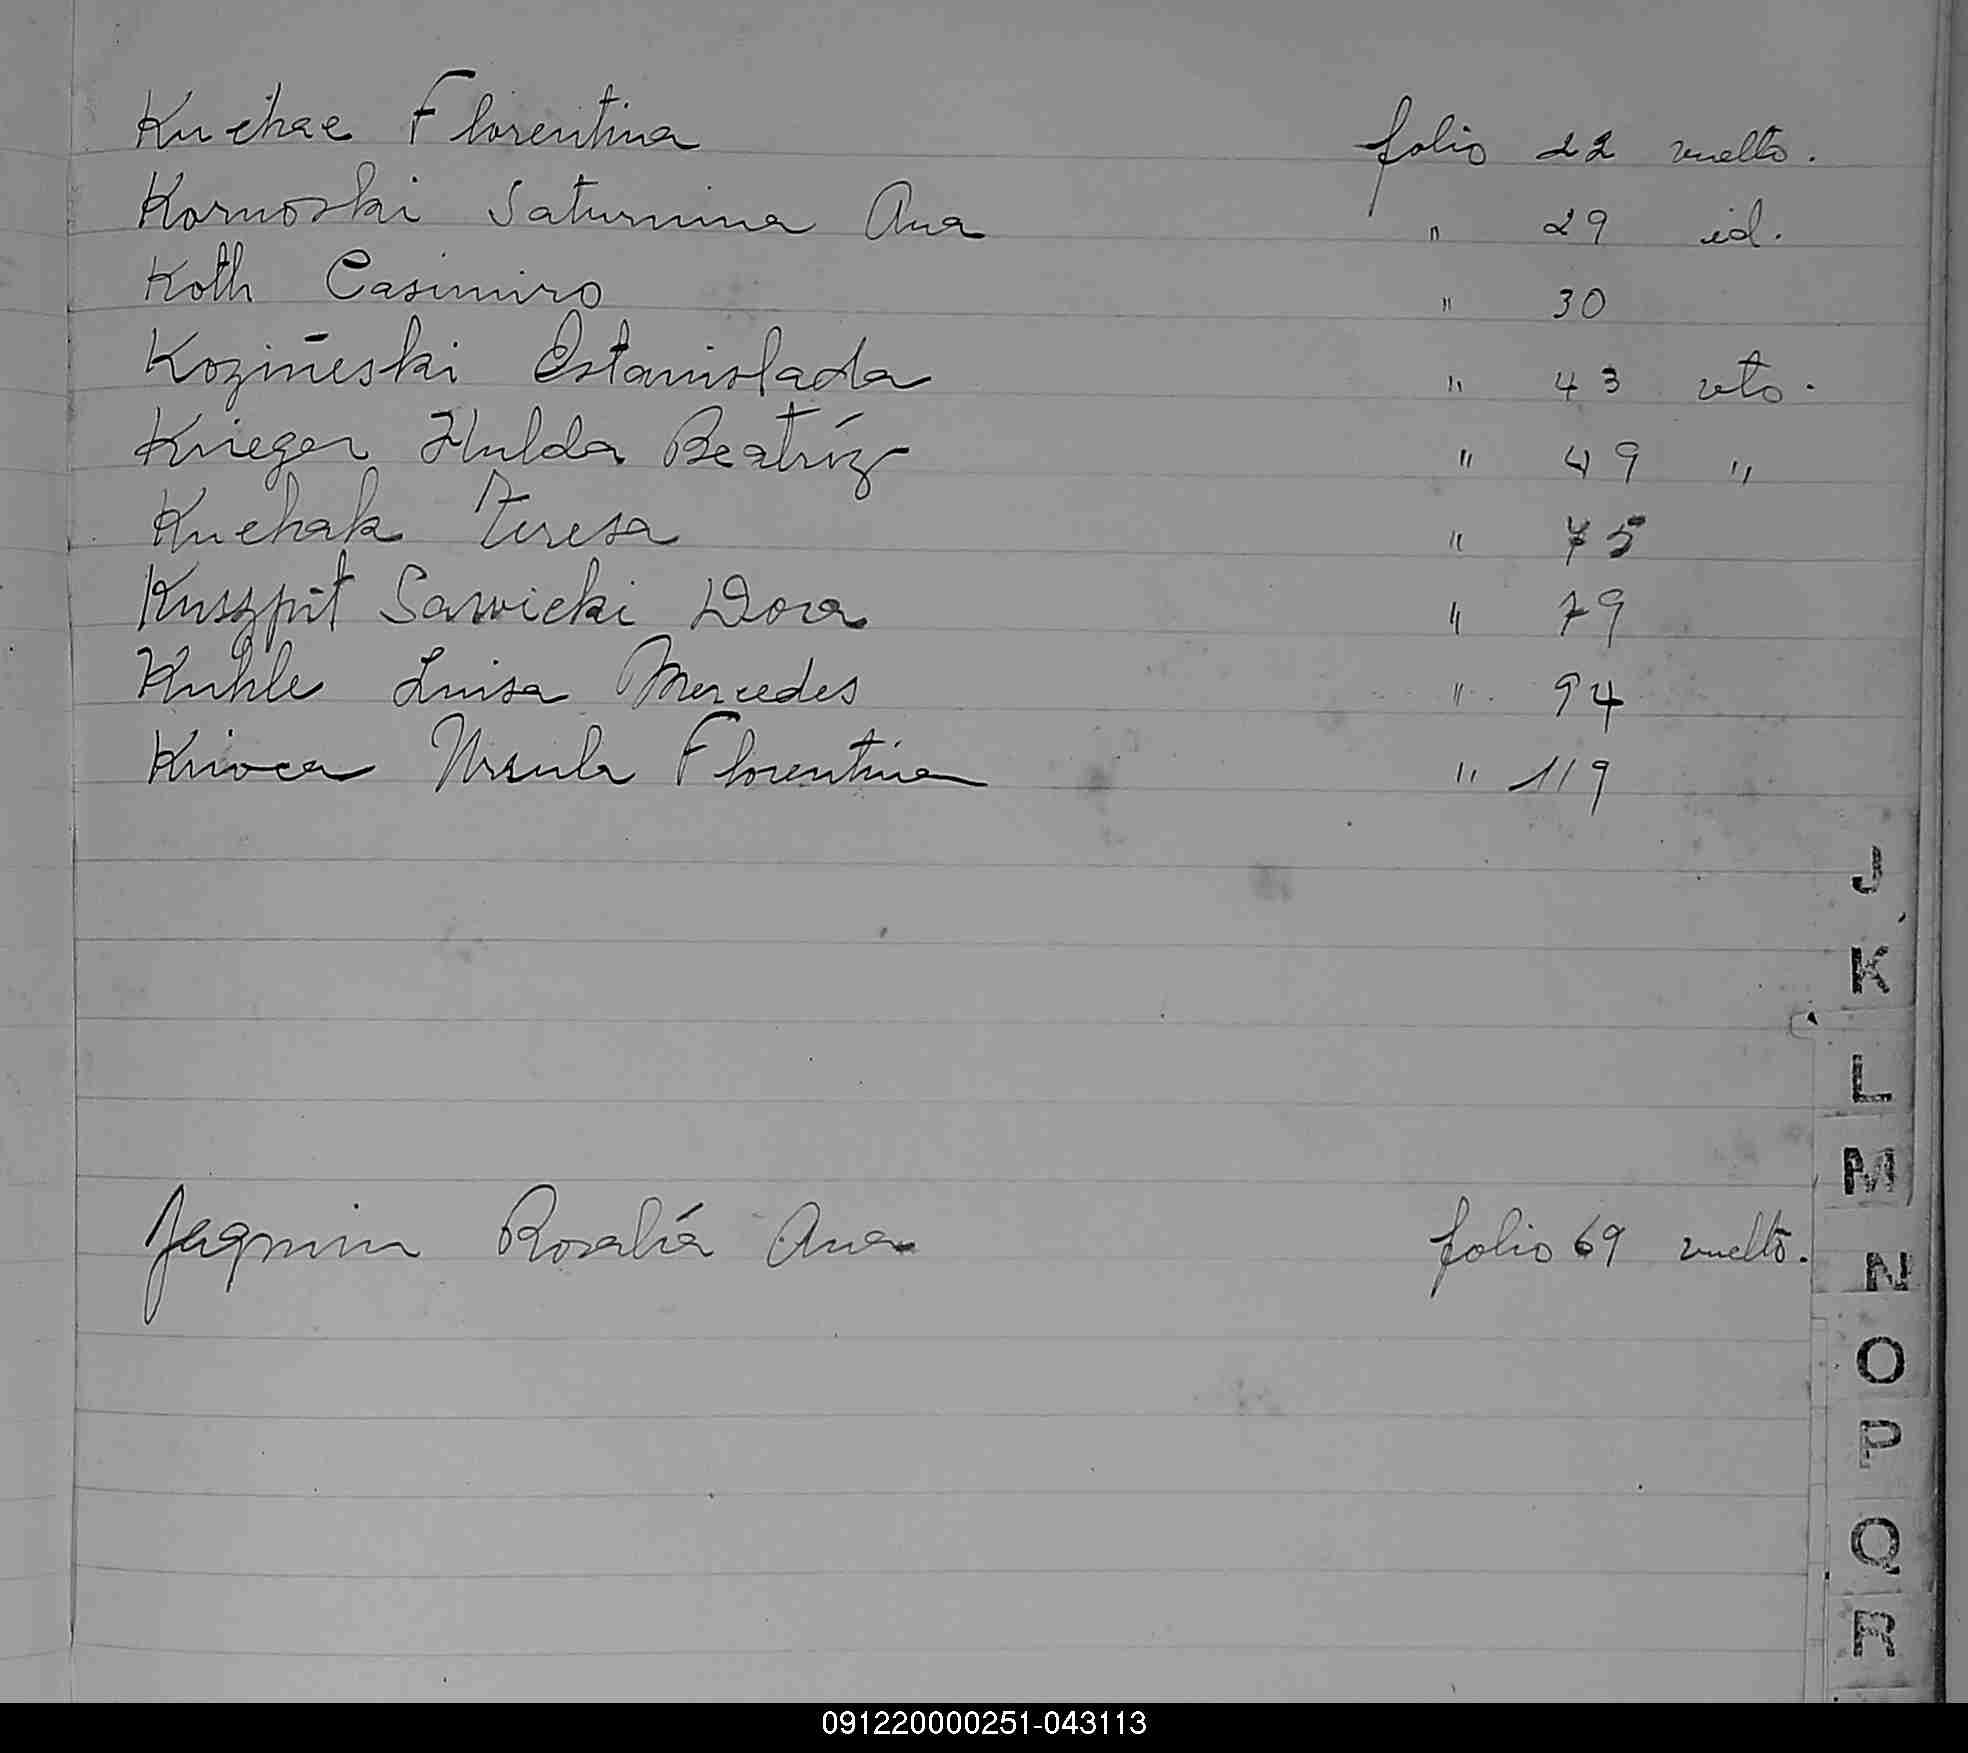 Kuchae Florentina folio 22 vuelto.
Kornoski Saturnina Ana " 29 id.
Koth Casimiro " 30
Kozineski Estanislada " 43 vto.
Krieger Hulda Beatríz " 49 "
Kuchak Teresa " 75
Kuszpit Sawicki Dora " 79
Kuhle Luisa Mercedes " 94
Krivca Ursula Florentina " 119
J
K
L
M
Jaqmin Rosalía Ana folio 69 vuelto.
N
O
P
Q
R
091220000251-043113